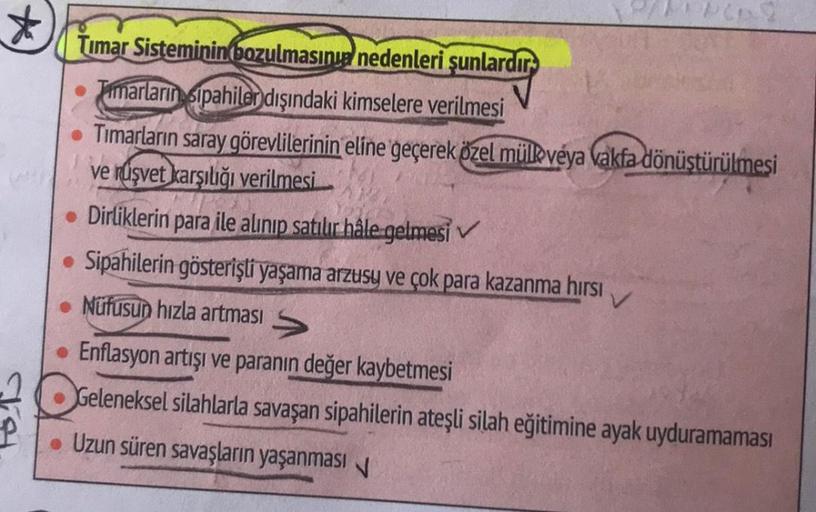 Tımar Sisteminin bozulmasının nedenleri şunlardır;
• Tımarların sipahiler dışındaki kimselere verilmesi
• Tımarların saray görevlilerinin eline geçerek özel mülk veya vakfa dönüştürülmesi
ve rüşvet karşılığı verilmesi
• Dirliklerin para ile alınıp satılır hâle gelmesi
• Sipahilerin gösterişli yaşama arzusu ve çok para kazanma hırsı
• Nüfusun hızla artması
• Enflasyon artışı ve paranın değer kaybetmesi
• Geleneksel silahlarla savaşan sipahilerin ateşli silah eğitimine ayak uyduramaması
• Uzun süren savaşların yaşanması